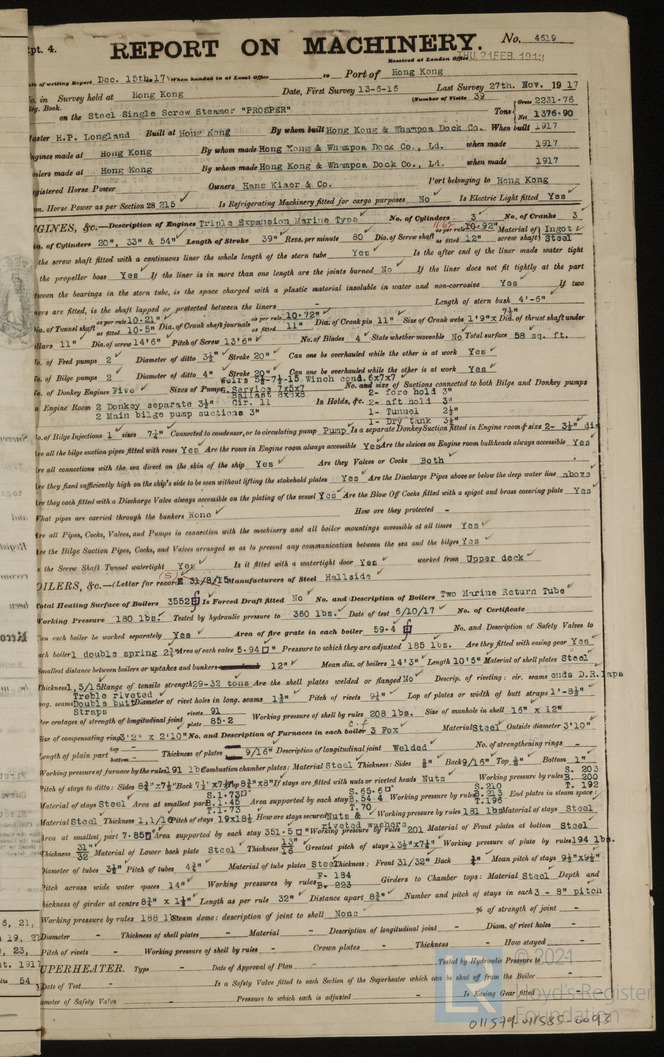 Rpt. 4.
REPORT ON MACHINERY. No. 4519
Received at London Office THU. 21 FEB. 1918
Date of writing Report Dec. 15th. 17 When handed in at Local Office to Port of Hong Kong
No. in Survey held at Hong Kong Date, First Survey 13-6-16 Last Survey 27th. Nov. 1917
Reg. Book. (Number of Visits 39
on the Steel Single Screw Steamer "PROSPER" Tons Gross 2231.76 Net 1376.90
Master H.P. Longland Built at Hong Kong By whom built Hong Kong & Whampoa Dock Co. When built 1917
Engines made at Hong Kong By whom made Hong Kong & Whampoa Dock Co., Ld. when made 1917
Boilers made at Hong Kong By whom made Hong Kong & Whampoa Dock Co., Ld. when made 1917
Registered Horse Power Owners Hans Kiaer & Co. Port belonging to Hong Kong
Nom. Horse Power as per Section 28 215 Is Refrigerating Machinery fitted for cargo purposes No Is Electric Light fitted Yes
ENGINES, &c.—Description of Engines Triple Expansion Marine Type No. of Cylinders 3 No. of Cranks 3
Dia. of Cylinders 20", 33" & 54" Length of Stroke 39" Revs. per minute 80 Dia. of Screw shaft as per rule 10.92" as fitted 12" Material of screw shaft Ingot Steel
Is the screw shaft fitted with a continuous liner the whole length of the stern tube Yes Is the after end of the liner made water tight
in the propeller boss Yes If the liner is in more than one length are the joints burned No If the liner does not fit tightly at the part
between the bearings in the stern tube, is the space charged with a plastic material insoluble in water and non-corrosive Yes If two
liners are fitted, is the shaft lapped or protected between the liners - Length of stern bush 4'-5"
Dia. of Tunnel shaft as per rule 10.21" as fitted 10.5" Dia. of Crank shaft journals as per rule 10.72" as fitted 11" Dia. of Crank pin 11" Size of Crank webs 1'9"x 7½" Dia. of thrust shaft under
collars 11" Dia. of screw 14'6" Pitch of Screw 13'6" No. of Blades 4 State whether moveable No Total surface 58 sq. ft.
No. of Feed pumps 2 Diameter of ditto 3½" Stroke 20" Can one be overhauled while the other is at work Yes
No. of Bilge pumps 2 Diameter of ditto 4" Stroke 20" Can one be overhauled while the other is at work Yes
No. of Donkey Engines Five Sizes of Pumps Weirs 5½-7½-15 Winch cond. 6x7x7 Service 7x5x7 Ballast 8x8x8 Cir. 11 No. and size of Suctions connected to both Bilge and Donkey pumps
In Engine Room 2 Donkey separate 3½" 2 Main bilge pump suctions 3" In Holds, &c. 2- fore hold 3" 2- aft hold 3" 1- Tunnel 2½" 1- Dry tank 3½"
No. of Bilge Injections 1 sizes 7½" Connected to condenser, or to circulating pump Pump Is a separate Donkey Suction fitted in Engine room & size 2- 3½" dia
Are all the bilge suction pipes fitted with roses Yes Are the roses in Engine room always accessible Yes Are the sluices on Engine room bulkheads always accessible Yes
Are all connections with the sea direct on the skin of the ship Yes Are they Valves or Cocks Both
Are they fixed sufficiently high on the ship's side to be seen without lifting the stokehold plates Yes Are the Discharge Pipes above or below the deep water line above
Are they each fitted with a Discharge Valve always accessible on the plating of the vessel Yes Are the Blow Off Cocks fitted with a spigot and brass covering plate Yes
What pipes are carried through the bunkers None How are they protected -
Are all Pipes, Cocks, Valves, and Pumps in connection with the machinery and all boiler mountings accessible at all times Yes
Are the Bilge Suction Pipes, Cocks, and Valves arranged so as to prevent any communication between the sea and the bilges Yes
Is the Screw Shaft Tunnel watertight Yes Is it fitted with a watertight door Yes worked from Upper deck
BOILERS, &c.—(Letter for record (S) 31/8/15 Manufacturers of Steel Hallside
Total Heating Surface of Boilers 3552 Is Forced Draft fitted No No. and Description of Boilers Two Marine Return Tube
Working Pressure 180 lbs. Tested by hydraulic pressure to 360 lbs. Date of test 6/10/17 No. of Certificate
Can each boiler be worked separately Yes Area of fire grate in each boiler 59.4 No. and Description of Safety Valves to
each boiler 1 double spring 2¾ Area of each valve 5.94 □" Pressure to which they are adjusted 185 lbs. Are they fitted with easing gear Yes
Smallest distance between boilers or uptakes and bunkers 12" Mean dia. of boilers 14'3" Length 10'6" Material of shell plates Steel
Thickness 1.5/16 Range of tensile strength 29-32 tons Are the shell plates welded or flanged No Descrip. of riveting: cir. seams ends D.R. laps
long. seams Treble riveted Double butt Straps Diameter of rivet holes in long. seams 1¾" Pitch of rivets 9¼" Lap of plates or width of butt straps 1'-8½"
Per centages of strength of longitudinal joint rivets 91 plate 85.2 Working pressure of shell by rules 208 lbs. Size of manhole in shell 16" x 12"
Size of compensating ring 3'2" x 2'10" No. and Description of Furnaces in each boiler 3 Fox Material Steel Outside diameter 3'10"
Length of plain part top - bottom - Thickness of plates 9/16" Description of longitudinal joint Welded No. of strengthening rings -
Working pressure of furnace by the rules 191 lb Combustion chamber plates: Material Steel Thickness: Sides ⅝" Back 9/16" Top ⅝" Bottom 1"
Pitch of stays to ditto: Sides 8¾"x7½" Back 7½"x7¾" Top 8¾"x8" If stays are fitted with nuts or riveted heads Nuts Working pressure by rules S. 203 B. 200 T. 192
Material of stays Steel Area at smallest part S.1.73 B.1.45 T.1.73 Area supported by each stay S.65.6 B.54.4 T.70 Working pressure by rules S.210 B.213 T.196 End plates in steam space:
Material Steel Thickness 1.1/16 Pitch of stays 19x18½ How are stays secured Nuts & riveted washers Working pressure by rules 181 lbs Material of stays Steel
Area at smallest part 7.85 Area supported by each stay 351.5 Working pressure by rules 201 Material of Front plates at bottom Steel
Thickness 31/32" Material of Lower back plate Steel Thickness 13"/16 Greatest pitch of stays 13½"x7½" Working pressure of plate by rules 194 lbs.
Diameter of tubes 3½" Pitch of tubes 4¾" Material of tube plates Steel Thickness: Front 31/32" Back ¾" Mean pitch of stays 9½"x9½"
Pitch across wide water spaces 14" Working pressures by rules F- 184 B- 223 Girders to Chamber tops: Material Steel Depth and
thickness of girder at centre 8¾" x 1½" Length as per rule 32" Distance apart 8¾" Number and pitch of stays in each 3 - 8" pitch
Working pressure by rules 188 lb Steam dome: description of joint to shell None % of strength of joint -
Diameter - Thickness of shell plates - Material - Description of longitudinal joint - Diam. of rivet holes -
Pitch of rivets - Working pressure of shell by rules - Crown plates - Thickness - How stayed -
SUPERHEATER. Type - Date of Approval of Plan - Tested by Hydraulic Pressure to -
Date of Test - Is a Safety Valve fitted to each Section of the Superheater which can be shut off from the Boiler -
Diameter of Safety Valve - Pressure to which each is adjusted - Is Easing Gear fitted -
© 2021
Lloyd's Register
Foundation
011579-011585-0093